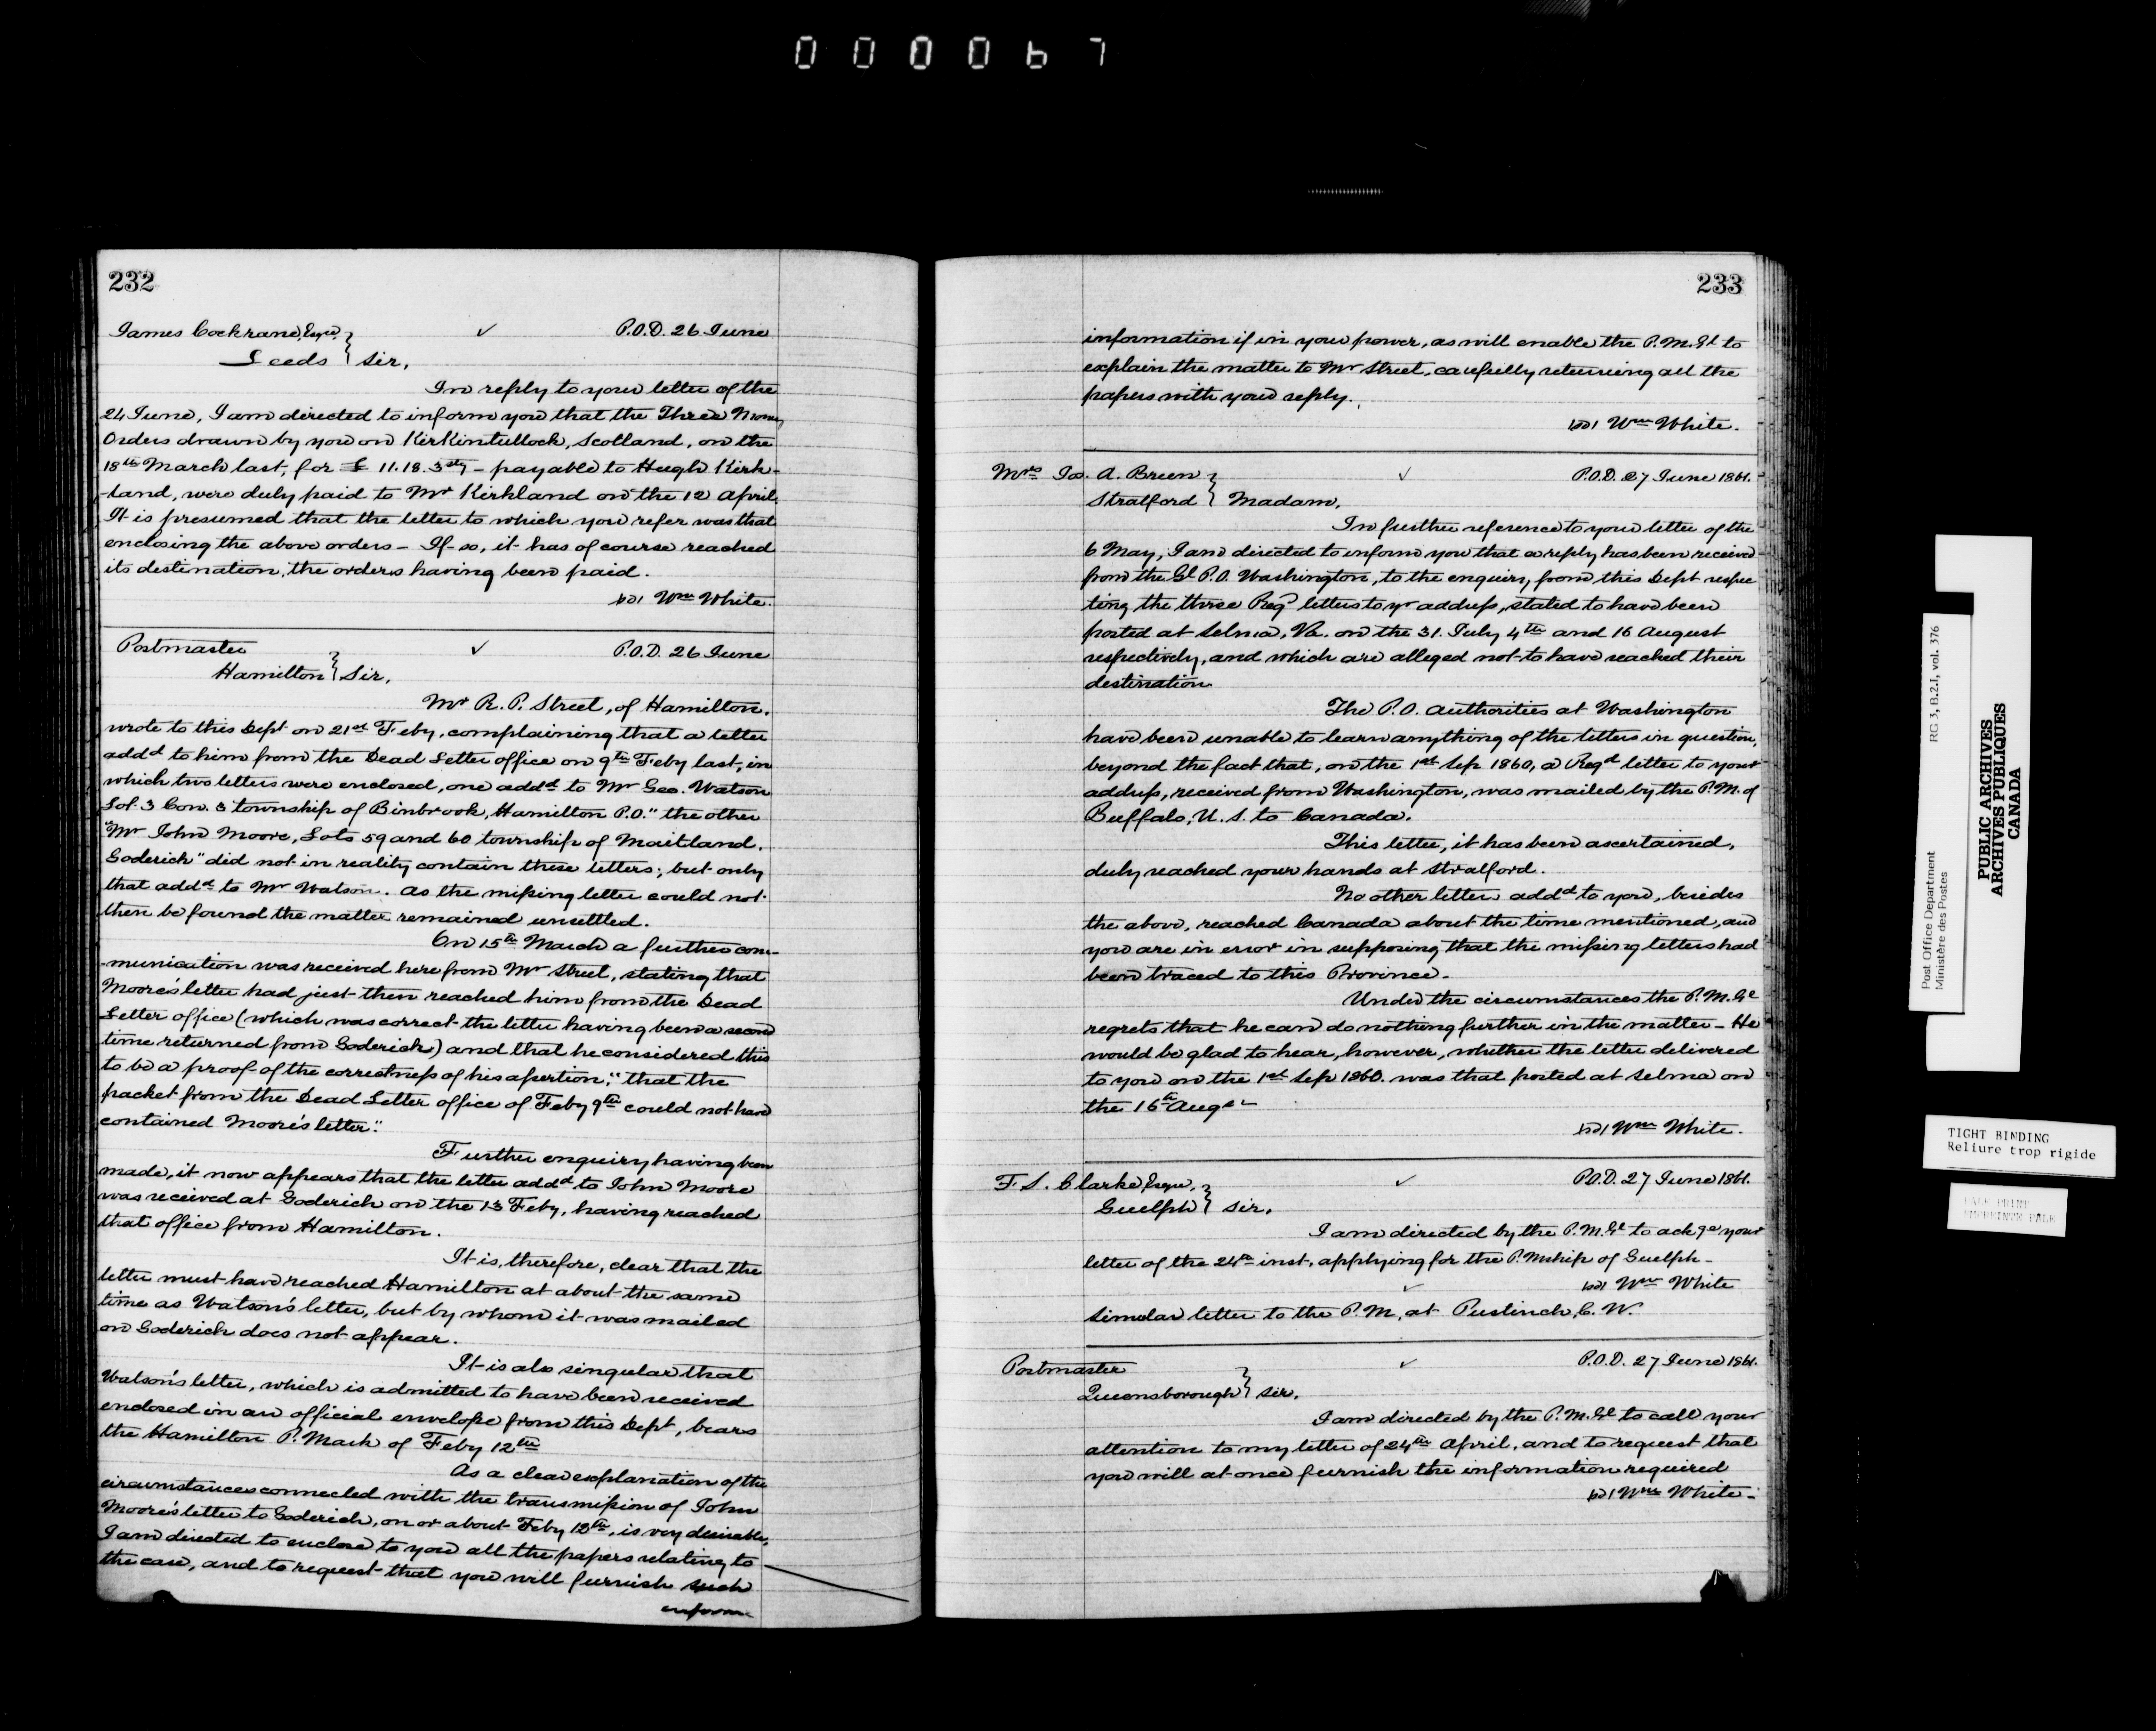 000067
232
James Cockrane, Esqre. ✓ P.O.D. 26 June
Leeds } Sir,
In reply to your letter of the
24 June, I am directed to inform you that the Three Money
Orders drawn by you on Kirkintullock, Scotland, on the
18th March last, for £ 11.18.3 - payable to Hugh Kirk-
-land, were duly paid to Mr Kirkland on the 12 April.
It is presumed that the letter to which you refer was that
enclosing the above orders - If so, it has of course reached
its destination, the orders having been paid.
Wm White.
Postmaster ✓ P.O.D. 26 June
Hamilton } Sir,
Mr R. P. Street, of Hamilton,
wrote to this Dept on 21st Feby, complaining that a letter
addd to him from the Dead Letter office on 9th Feby last, in
which two letters were enclosed, one addd to Mr Geo. Watson
Lot 3 Con. 3 township of Binbrook, Hamilton P.O." the other
"Mr John Moore, Lots 59 and 60 township of Maitland,
Goderich" did not in reality contain these letters; but only
that addd to Mr Watson. As the missing letter could not
then be found the matter remained unsettled.
On 15th March a further com-
-munication was received here from Mr Street, stating that
Moore's letter had just then reached him from the Dead
Letter office (which was correct the letter having been a second
time returned from Goderich) and that he considered this
to be a proof of the correctness of his assertion, "that the
packet from the Dead Letter office of Feby 9th could not have
contained Moore's letter."
Further enquiry having been
made, it now appears that the letter addd to John Moore
was received at Goderich on the 13 Feby, having reached
that office from Hamilton.
It is, therefore, clear that the
letter must have reached Hamilton at about the same
time as Watson's letter, but by whom it was mailed
on Goderich does not appear.
It is also singular that
Watson's letter, which is admitted to have been received
enclosed in an official envelope from this Dept, bears
the Hamilton P. Mark of Feby 12th
As a clear explanation of the
circumstances connected with the transmission of John
Moore's letter to Goderich, on or about Feby 12th, is very desirable,
I am directed to enclose to you all the papers relating to
the case, and to request that you will furnish such
inform-
233
information if in your power, as will enable the P.M.Gl to
explain the matter to Mr Street, carefully returning all the
papers with your reply.
Wm White.
Mrs Jas. A. Breen ✓ P.O.D. 27 June 1861.
Stratford } Madam,
In further reference to your letter of the
6 May, I am directed to inform you that a reply has been received
from the Gl P.O. Washington, to the enquiry from this Dept respec
ting the three Regd letters to yr address, stated to have been
posted at Selma, Va. on the 31. July 4th and 16 August
respectively, and which are alleged not to have reached their
destination
The P.O. authorities at Washington
have been unable to learn anything of the letters in question,
beyond the fact that, on the 1st Sep 1860, a Regd letter to your
address, received from Washington, was mailed by the P.M. of
Buffalo, U.S. to Canada.
This letter, it has been ascertained,
duly reached your hands at Stratford.
No other letter addd to you, besides
the above, reached Canada about the time mentioned, and
you are in error in supposing that the missing letters had
been traced to this Province.
Under the circumstances the P.M.Gl
regrets that he can do nothing further in the matter - He
would be glad to hear, however, whether the letter delivered
to you on the 1st Sep 1860. was that posted at Selma on
the 16th Augt
Wm White.
F. S. Clarke Esqre, ✓ P.O.D. 27 June 1861.
Guelph } Sir,
I am directed by the P.M.Gl to ackge your
letter of the 24th inst, applying for the P.Mship of Guelph -
✓ Wm White
Similar letter to the P.M, at Puslinch, C.W.
Postmaster ✓ P.O.D. 27 June 1861.
Queensborough } Sir,
I am directed by the P.M.Gl to call your
attention to my letter of 24th April, and to request that
you will at once furnish the information required
Wm White -
Post Office Department
Ministère des Postes
RG 3, B.2.I, vol. 376
PUBLIC ARCHIVES
ARCHIVES PUBLIQUES
CANADA
TIGHT BINDING
Reliure trop rigide
PALE PRINT
IMPRIMTE PALE